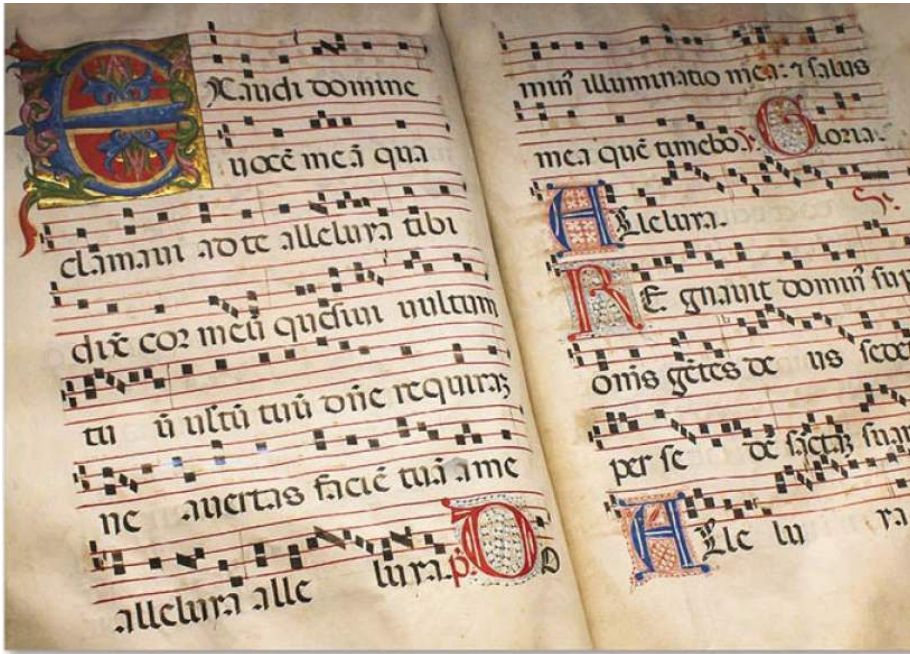 EXaudi domine
uocē meā qua
clamaui ad te alleluya tibi
dixit cor meū quesiui uultum
tuū uultū tuū dñe requirā
ne auertas faciē tuā a me
alleluya alleluya. p̄. DO
min' illuminatio mea: ⁊ salus
mea quē timebo. Gloria.
ALleluya.
REgnauit domin' sup
om̄s gētes de us sedet
per sedē sāctā suam
ALleluya